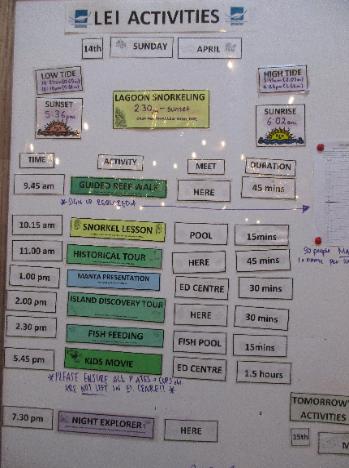 LEI ACTIVITIES
14th SUNDAY APRIL
LOW TIDE
HIGH TIDE
LAGOON SNORKELING
2.30pm - sunset
SUNSET
5:36pm
SUNRISE
6:02am
TIME ACTIVITY MEET DURATION
9.45 am GUIDED REEF WALK HERE 45 mins
* SIGN UP REQUIRED
10.15 am SNORKEL LESSON POOL 15mins
11.00 am HISTORICAL TOUR HERE 45 mins
1.00 pm MANTA PRESENTATION ED CENTRE 30 mins
2.00 pm ISLAND DISCOVERY TOUR HERE 30 mins
2.30 pm FISH FEEDING FISH POOL 15mins
5.45 pm KIDS MOVIE ED CENTRE 1.5 hours
*PLEASE ENSURE ALL PLATES + CUPS
ARE NOT LEFT IN ED CENTRE!! *
7.30 pm NIGHT EXPLORER HERE
30 people
TOMORROW'
ACTIVITIES
15th M